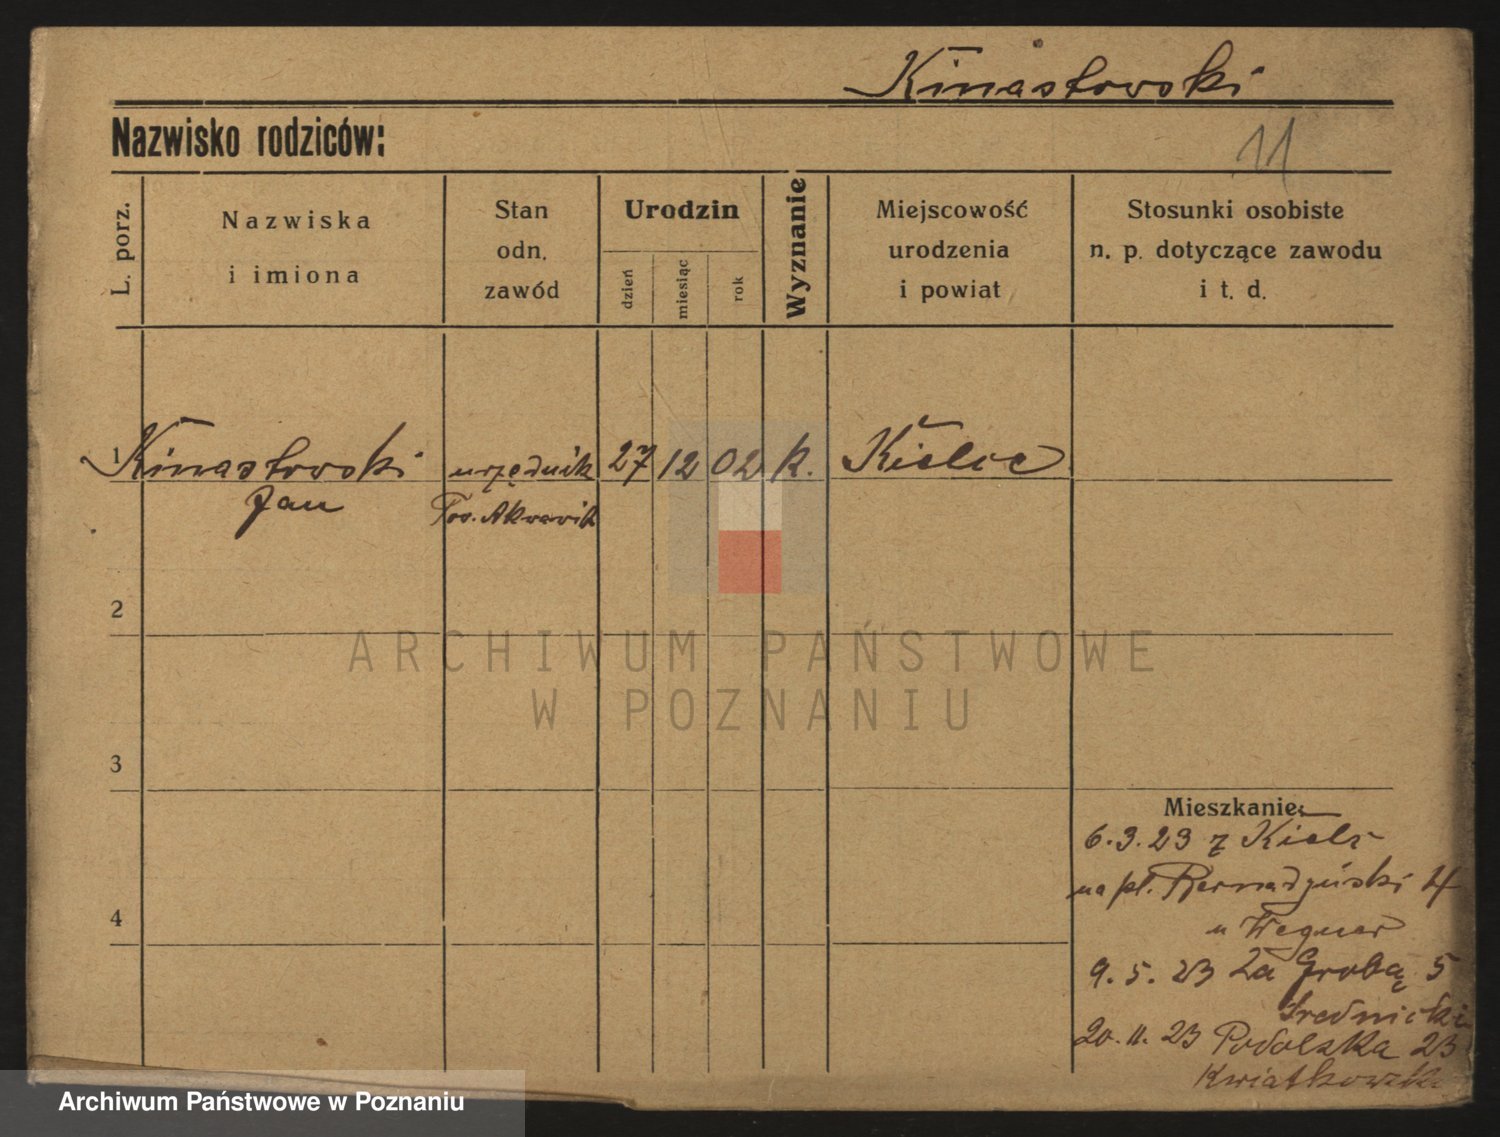 Kinastowski
Nazwisko rodziców:
11
L. porz.
Nazwiska
i imiona
Stan
odn.
zawód
Urodzin
dzień
miesiąc
rok
Wyznanie
Miejscowość
urodzenia
i powiat
Stosunki osobiste
n. p. dotyczące zawodu
i t. d.
1 Kinastowski urzędnik 27 12 02 k. Kielce
Jan Tow. Akwawit
2
ARCHIWUM PAŃSTWOWE
W POZNANIU
3
Mieszkanie:
6.3.23 z Kielc
na pl. Bernadyński 4
u Wegner
4
9.5.23 Za Grobą 5
Średnicki
20.11.23 Podolska 23
Archiwum Państwowe w Poznaniu